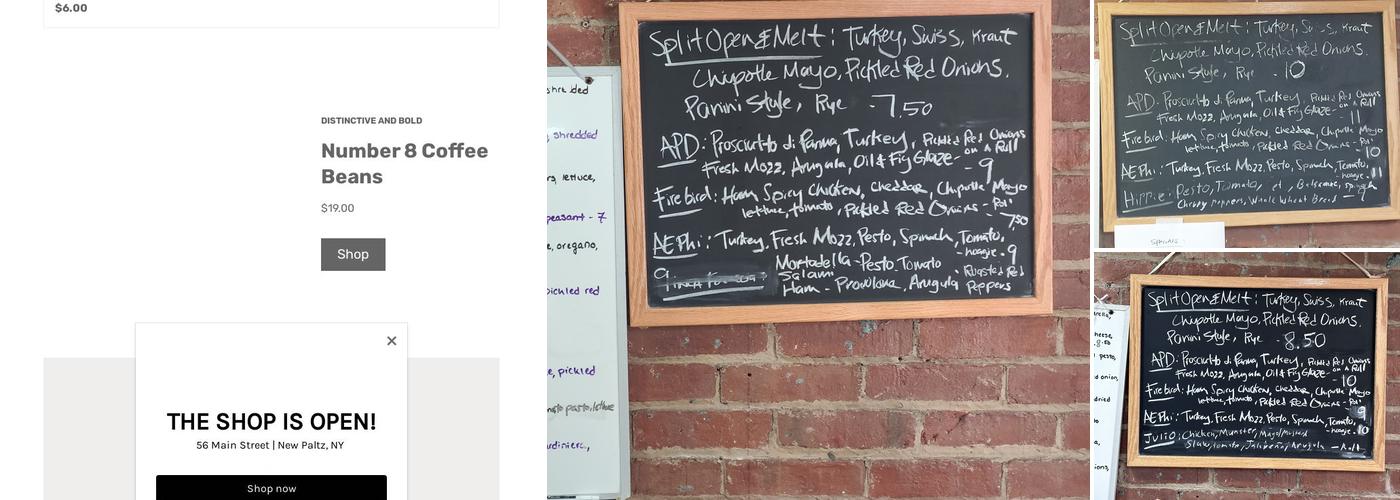 $6.00
DISTINCTIVE AND BOLD
Number 8 Coffee
Beans
$19.00
Shop
THE SHOP IS OPEN!
56 Main Street | New Paltz, NY
Shop now
shredded
shredded
lettuce,
peasant - 7
, oregano,
pickled red
, pickled
pasto, lettuce
Split Open & Melt: Turkey, Swiss, Kraut
Chipotle Mayo, Pickled Red Onions.
Panini Style, Rye - 7.50
APD: Prosciutto di Parma, Turkey, Pickled Red Onions
on a Roll
Fresh Mozz, Arugula, Oil & Fig Glaze - 9
Firebird: Ham, Spicy Chicken, Cheddar, Chipotle Mayo
lettuce, tomato, Pickled Red Onions - Roll
7.50
AEPhi: Turkey, Fresh Mozz, Pesto, Spinach, Tomato,
- hoagie - 9
Mortadella - Pesto, Tomato
Salami - Roasted Red
Ham - Provolone, Arugula Peppers
Split Open & Melt: Turkey, Swiss, Kraut
Chipotle Mayo, Pickled Red Onions.
Panini Style, Rye - 10
APD: Prosciutto di Parma, Turkey, Pickled Red Onions
on a Roll
Fresh Mozz, Arugula, Oil & Fig Glaze - 11
Firebird: Ham, Spicy Chicken, Cheddar, Chipotle Mayo
lettuce, tomato, Pickled Red Onions - Roll
10
AEPhi: Turkey, Fresh Mozz, Pesto, Spinach, Tomato,
- hoagie - 11
Hippie: Pesto, Tomato, Balsamic, Spinach
Cherry Peppers, Whole Wheat Bread - 9
SPECIALS
Split Open & Melt: Turkey, Swiss, Kraut
Chipotle Mayo, Pickled Red Onions.
Panini Style, Rye - 8.50
APD: Prosciutto di Parma, Turkey, Pickled Red Onions
on a Roll
Fresh Mozz, Arugula, Oil & Fig Glaze - 10
Firebird: Ham, Spicy Chicken, Cheddar, Chipotle Mayo
lettuce, tomato, Pickled Red Onions - Roll
9
AEPhi: Turkey, Fresh Mozz, Pesto, Spinach, Tomato,
- hoagie - 10
Julio: Chicken, Munster, Mayo/Mustard
Slaw, tomato, Jalapeño, Arugula - Roll